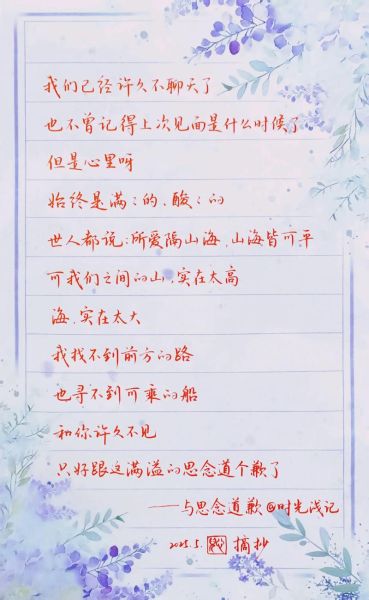 我们已经许久不聊天了
也不曾记得上次见面是什么时候了
但是心里呀
始终是满:的、酸:的
世人都说:所爱隔山海,山海皆可平
可我们之间的山,实在太高
海,实在太大
我找不到前方的路
也寻不到可乘的船
和你许久不见
只好跟这满溢的思念道个歉了
——与思念道歉@时光浅记
2025.5. 摘抄